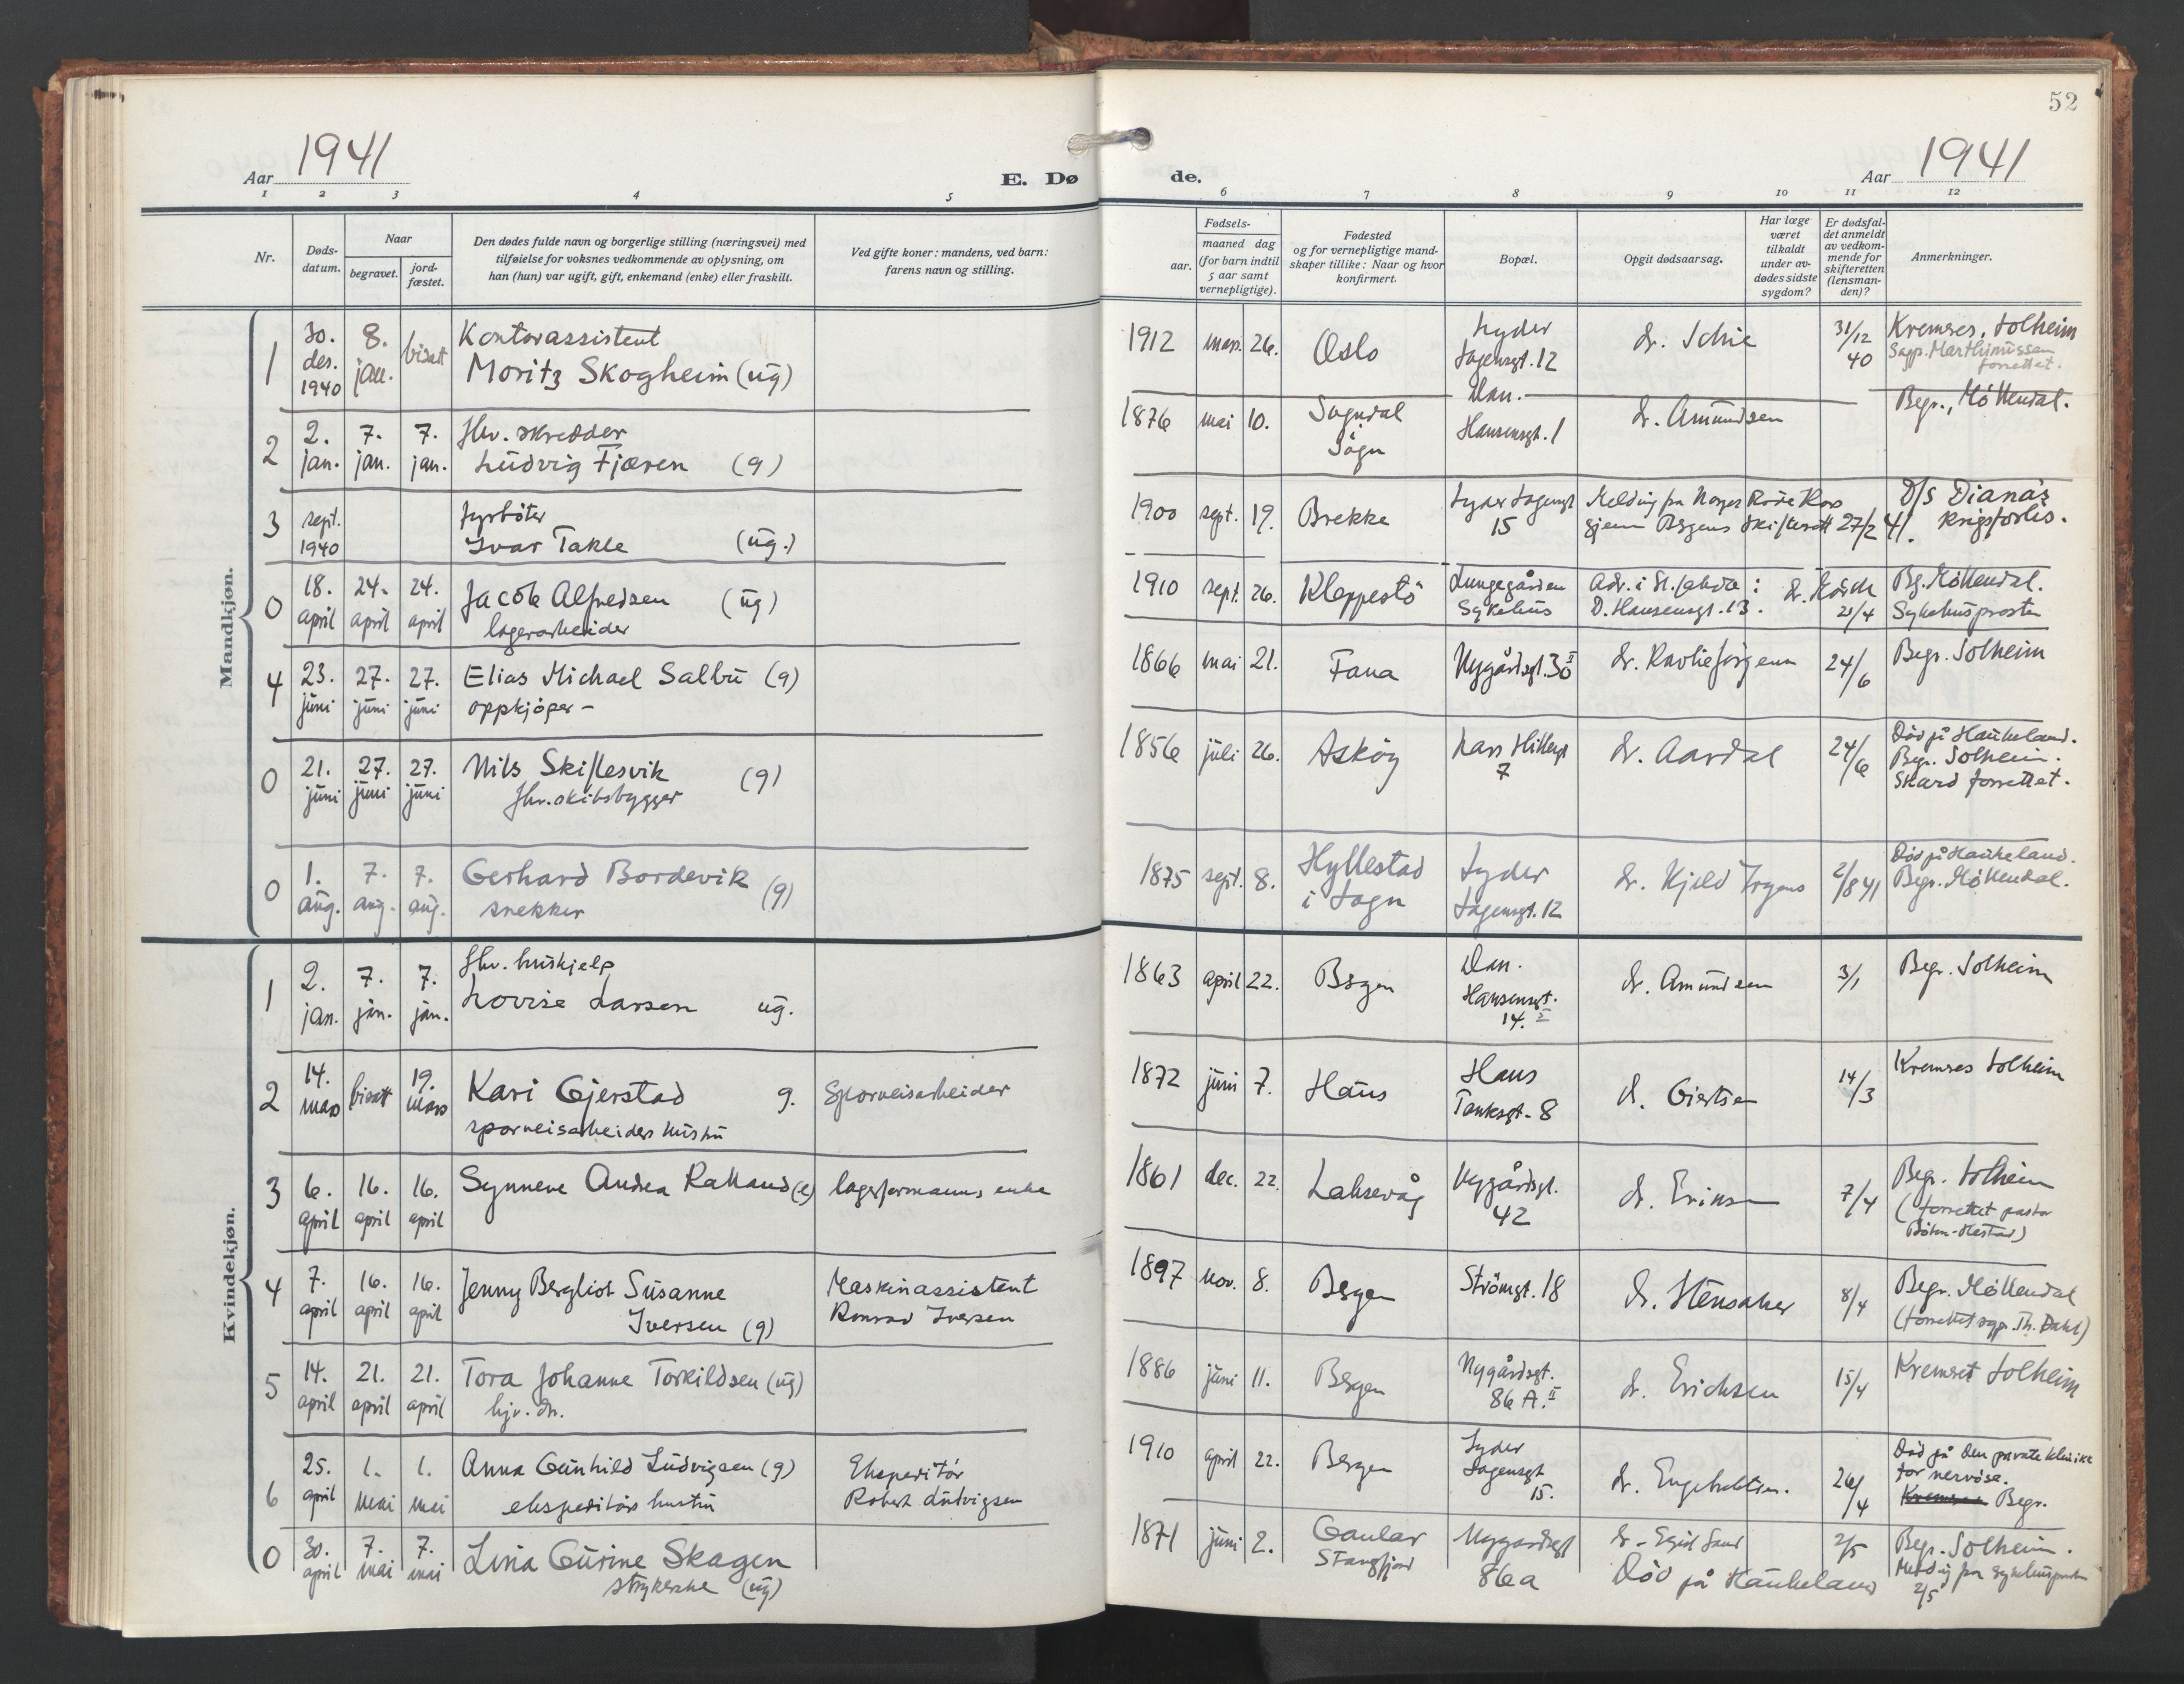 52
1941
1941
Aar
E. Dø
de.
Aar
1 2 3 4 5
6 7 8 9 10 11 12
Nr.
Døds-
datum.
Naar
begravet.
jord-
fæstet.
Den dødes fulde navn og borgerlige stilling (næringsvei) med
tilføielse for voksnes vedkommende av oplysning, om
han (hun) var ugift, gift, enkemand (enke) eller fraskilt.
Ved gifte koner: mandens, ved barn:
farens navn og stilling.
Fødsels-
aar.
maaned dag
(for barn indtil
5 aar samt
vernepligtige).
Fødested
og for vernepligtige mand-
skaper tillike: Naar og hvor
konfirmert.
Bopæl.
Opgit dødsaarsag.
Har læge
været
tilkaldt
under av-
dødes sidste
sygdom?
Er dødsfal-
det anmeldt
av vedkom-
mende for
skifteretten
(lensman-
den)?
Anmerkninger.
Mandkjøn.
1 30. des. 1940 8. jan. bisatt Kontorassistent
Moritz Skogheim (ug)
1912 mars 26. Oslo Lyder
Sagensgt. 12 dr. Schie 31/12 40 Kremeres, Solheim
forrettet.
2 2. jan. 7. jan. 7. jan. fhv. skredder
Ludvig Fjæren (g)
1876 mai 10. Sogndal
i
Sogn Dan.
Hansensgt. 1 dr. Amundsen Begr., Møllendal.
3 sept. 1940 fyrbøter
Ivar Takle (ug.)
1900 sept. 19. Brekke Lyder Sagensgt
15 Melding fra Norges Røde Kors
gjenn Bergens Skifterett 27/2 41. D/S Diana's
krigsforlis.
0 18. april 24. april 24. april Jacob Alfredsen (ug)
lagerarbeider
1910 sept. 26. Kleppestø Lungegården
Sykehus Adr. i St. Jakob:
D. Hansensgt. 13. 21/4 Bg. Møllendal.
Sykehuspresten
4 23. juni 27. juni 27. juni Elias Michael Salbu (g)
oppkjøper -
1866 mai 21. Fana Nygårdsgt. 30 II dr. 24/6 Begr. Solheim
0 21. juni 27. juni 27. juni Nils Skiftesvik (g)
fhv. skibsbygger
1856 juli 26. Askøy Lars Hillesgt
7 dr. Aardal 24/6 Død på Haukeland.
Begr. Solheim.
Skard forrettet.
0 1. aug. 7. aug. 7. aug. Gerhard Bordevik (g)
snekker
1875 sept. 8. Hyllestad
i Sogn Lyder
Sagensgt. 12 dr. Kjeld Irgens 2/8 41 Død på Haukeland.
Begr. Møllendal.
Kvindekjøn.
1 2. jan. 7. jan. 7. jan. fhv. hushjelp
Lovise Larsen ug.
1863 april 22. Bergen Dan.
Hansensgt.
14. I dr. Amundsen 3/1 Begr. Solheim
2 14. mars bisatt 19. mars Kari Gjerstad g. Sporveisarbeider
sporveisarbeiders hustru
1872 juni 7. Haus Hans
Tanksgt. 8 d. Giertsen 14/3 Kremeres Solheim
3 6. april 16. april 16. april Synneve Andrea Ralland (e) lagerformanns enke
1861 dec. 22. Laksevåg Nygårdsgt.
42 dr. Eriksen 7/4 Begr. Solheim
(forrettet pastor
4 7. april 16. april 16. april Jenny Bergliot Susanne
Iversen (g)
Maskinassistent
Konrad Iversen
1897 nov. 8. Bergen Strømgt. 18 dr. Stensaker 8/4 Begr. Møllendal
(forrettet sgpr. Th. Dahl)
5 14. april 21. april 21. april Tora Johanne Torkildsen (ug)
hjv. dr.
1886 juni 11. Bergen Nygårdsgt.
86 A. II dr. Erichsen 15/4 Kremeret Solheim
6 25. april 1. mai 1. mai Anna Gunhild Ludvigsen (g)
ekspeditørs hustru
Ekspeditør
Robert Ludvigsen
1910 april 22. Bergen Lyder
Sagensgt
15. dr. 26/4 Død på den private klinikk
for nervøse.
Begr.
0 30. april 7. mai 7. mai Lina Gurine Skagen
strykerske (ug)
1871 juni 2. Gaular
Stangfjord Nygårdsgt
86a dr. Egil Sand
Død på Haukeland 2/5 Begr. Solheim.
Melding fra sykehuspresten
2/5